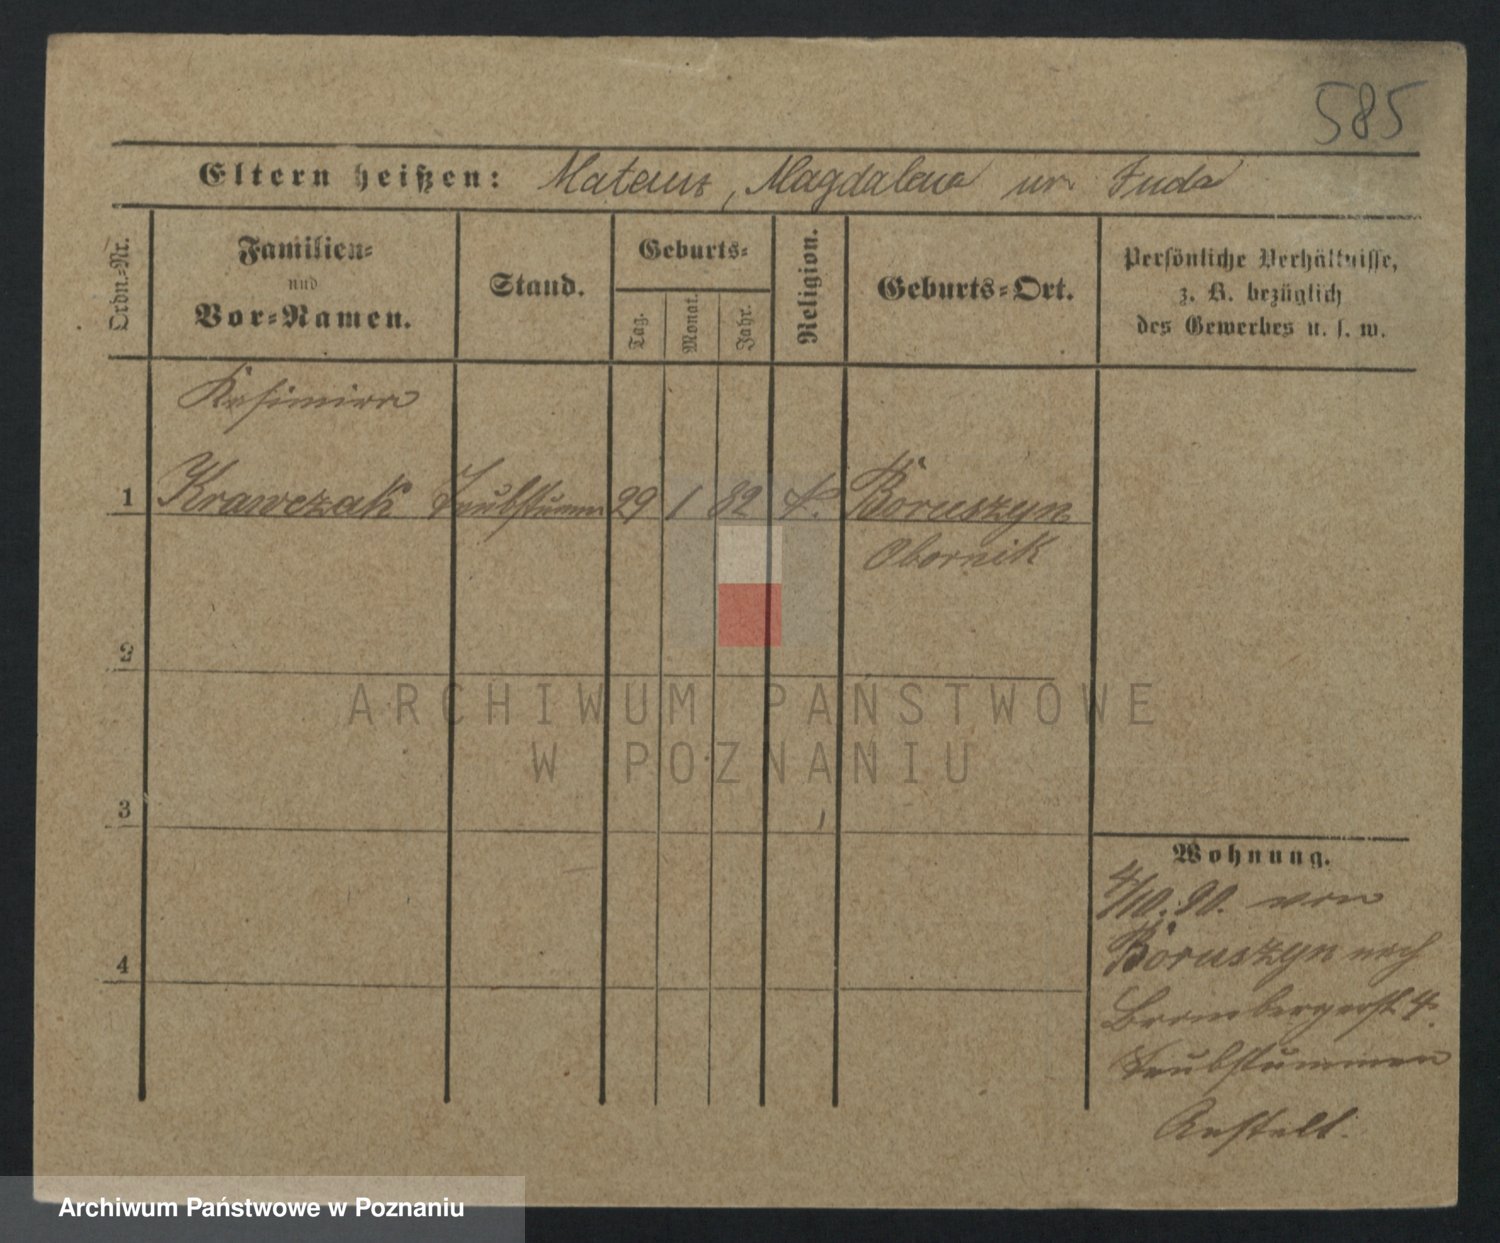 585
Eltern heißen: Mateusz, Magdalena ur. Duda
Ordn.=Nr.
Familien=
und
Vor=Namen.
Stand.
Geburts=
Tag.
Monat.
Jahr.
Religion.
Geburts=Ort.
Persönliche Verhältnisse,
z. B. bezüglich
des Gewerbes u. s. w.
Kasimira
1 Krawczak Taubstumm 29 1 82 k. Boruszyn
Obornik
2
ARCHIWUM PAŃSTWOWE
W POZNANIU
3
4
Wohnung.
4/10. 90. von
Boruszyn nach
Brombergerst 4.
Taubstummen
Anstalt.
Archiwum Państwowe w Poznaniu